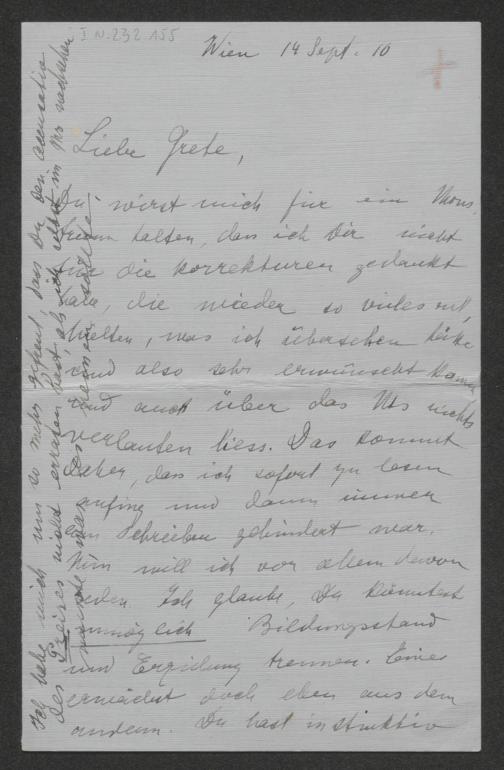 I N. 232.155
Wien 14 Sept. 10
Liebe Grete,
Du wirst mich für ein Mons-
trum halten, dass ich Dir nicht
für die Korrekturen gedankt
habe, die wieder so vieles ent-
hielten, was ich übersehen hätte
und also sehr erwünscht kamen
und auch über das Ms nichts
verlauten liess. Das kommt
daher, dass ich sofort zu lesen
anfing und dann immer
am Schreiben gehindert war.
Nun will ich vor allem davon
reden. Ich glaube, Du könntest
unmöglich Bildungsstand
und Erziehung trennen. Eines
erwächst doch eben aus dem
andern. Du hast instinktiv
Ich habe mich um so mehr gefreut, dass Du den
des Preises nicht erraten hast, als ich selbst im Ms nachsehen